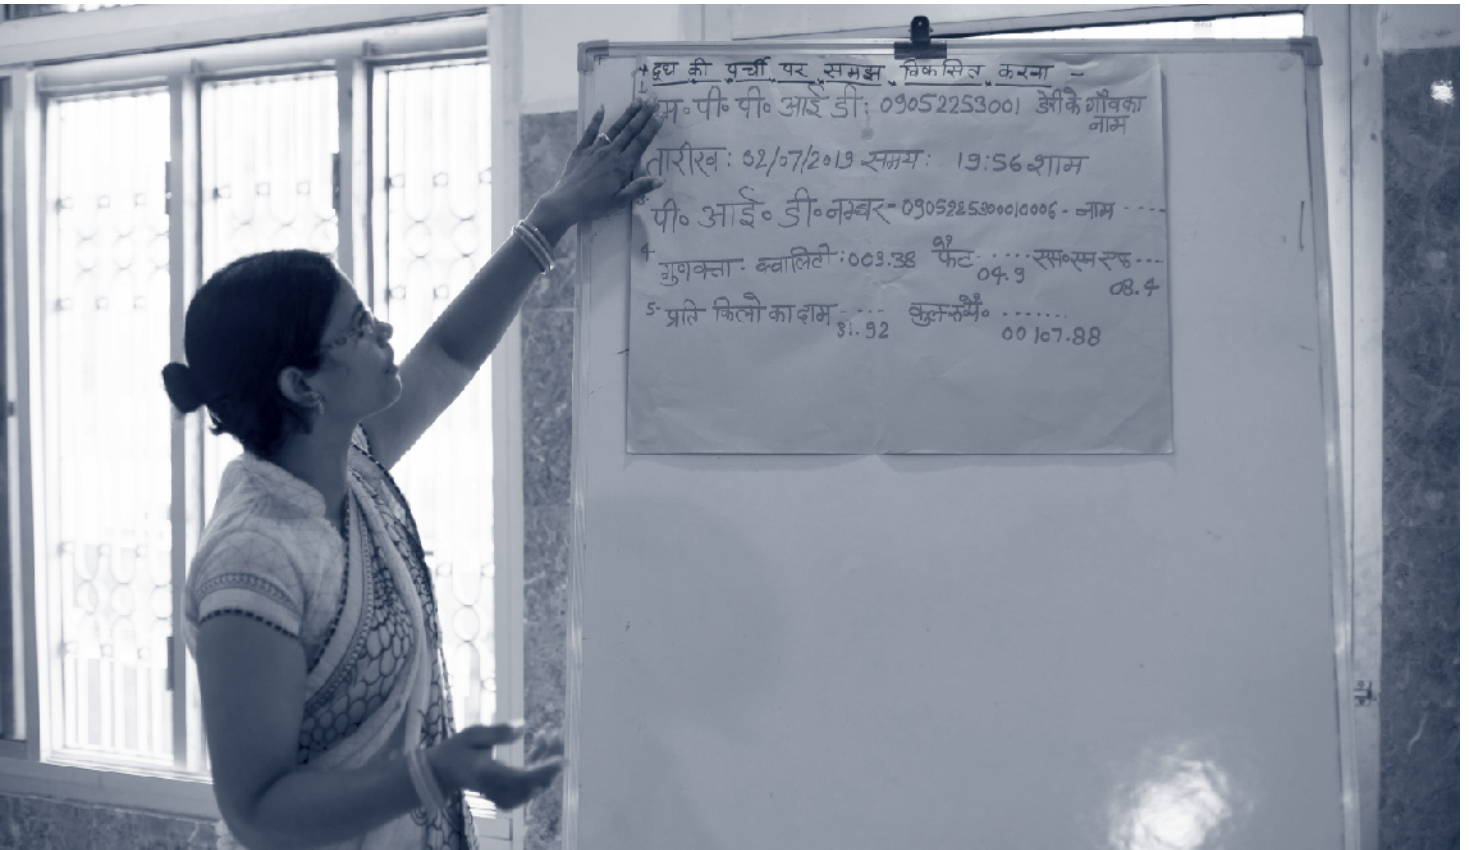 * दूध की पर्ची पर समझ विकसित करना -
एम॰ पी॰ पी॰ आई डी: 09052253001 डेरी के गाँव का
नाम
तारीख: 02/07/2019 समय: 19:56 शाम
3. पी॰ आई॰ डी॰ नम्बर - 0905225300010006 - नाम ----
4. गुणवत्ता - क्वालिटी: 003.38 फैट ..... एस॰एन एफ ....
04.9 08.4
5- प्रति किलो का दाम ---- कुल रुपये॰ .......
31.92 00107.88